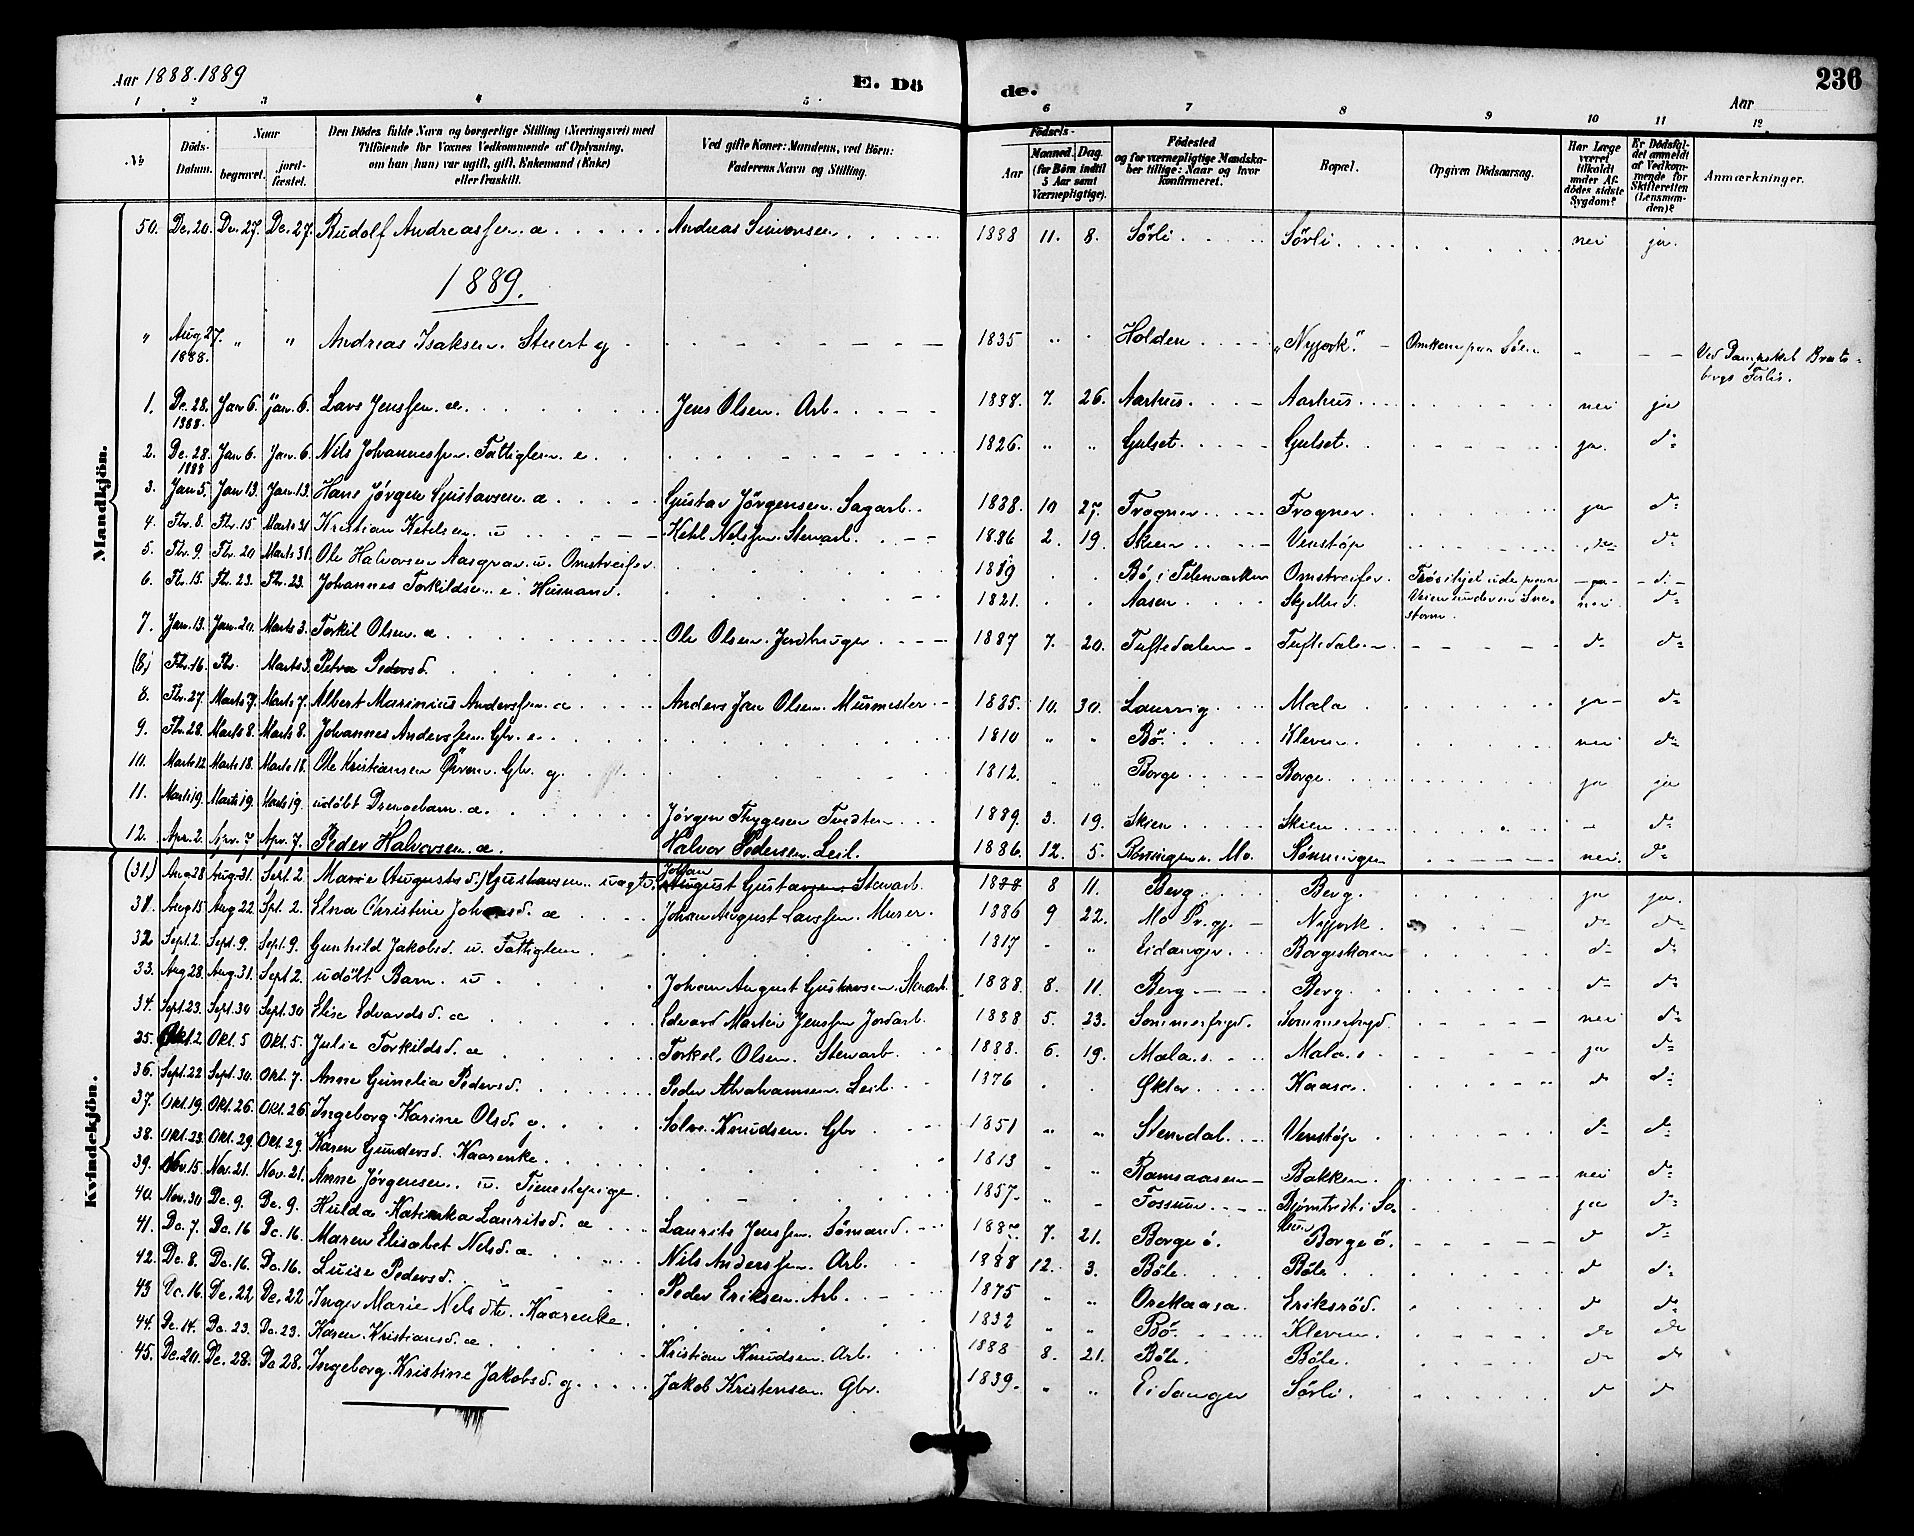 Aar 1888.1889 E. Dö de. Aar 236
1 2 3 4 5 6 7 8 9 10 11 12.
No Döds-Datum. Naar begravet. jord-fæstet. Den Dödes fulde Navn og borgerlige Stilling (Næringsvei) med Tilföiende for Voxnes Vedkommende af Oplysning, om han (hun) var ugift, gift, Enkemand (Enke) eller fraskilt. Ved gifte Koner: Mandens, ved Börn: Faderens Navn og Stilling. Födsels- Aar Maaned. Dag. (for Börn indtil 5 Aar samt Værnepligtige). Födested og for værnepligtige Mandska-ber tillige: Naar og hvor Konfirmeret. Bopæl. Opgiven Dödsaarsag. Har Læge været tilkaldt under Af-dödes sidste Sygdom? Er Dödsfal-det anmeldt af Vedkom-mende for Skifteretten (Lensman-den)? Anmærkninger.
Mandkjön.
50. De. 20. De. 27. De. 27. Rudolf Andreassen. æ Andreas Simonsen 1888 11. 8. Sörli Sörli. nei ja.
1889.
" Aug 27. 1888. " " Andreas Isaksen. Stuert g 1835 Holden "Nyjork". Omkom paa Söen Ved Dampskibet Brats-bergs Forlis.
1. De. 28. 1888. Jan 6. Jan. 6. Lars Jenssen. æ Jens Olsen. Arb. 1888. 7. 26. Aarhus Aarhus nei ja
2. De. 28. 1888 Jan 6. Jan. 6. Nils Johannessen. Fattiglem. e. 1826. " " Gulset. Gulset. ja. do
3. Jan 5. Jan 13. Jan. 13. Hans Jörgen Gustavsen. æ Gustav Jörgensen. Sagarb. 1888. 10 27. Frogner Frogner. ja do
4. Fbr. 8. Fbr. 15 Marts 31 Kristian Ketilsen. u Ketil Nelssen. Stenarb. 1886 2. 19. Skien Venstöp do do
5. Fbr. 9. Fbr. 20 Marts 31. Ole Halvorsen Aasgrav. u. Omstreifer. 1819 Bö i Telemarken Omstreifer. Frös ihjel ude paa ja do
6. Fbr. 15. Fbr. 23. Fbr. 23. Johannes Torkildsen. e. Husmand. 1821. Aasen Skjelbred. Veien under en Sne-storm. nei do
7. Jan. 13. Jan. 20. Marts 3. Torkil Olsen. æ Ole Olsen. Jordbruger 1887 7. 20. Tuftedalen Tuftedalen do do
(8) Fbr. 16. Fbr. Marts 3. Petra Pedersd.
8. Fbr. 27 Marts 7. Marts 7. Albert Marinius Anderssen. æ Anders Jan Olsen. Murmester 1885. 10. 30. Laurvig Mæla ja do
9. Fbr. 28. Marts 8. Marts 8. Johannes Anderssen. Gbr. e. 1810 " " Bö. Kleven. nei do
10. Marts 12 Marts 18. Marts 18. Ole Kristiansen Öhren. Gbr. g. 1812. Borge Borge. ja ja
11. Marts 19. Marts 19. Marts 19. udöbt Drengebarn. æ. Jörgen Thygesen Tvedten 1889. 3. 19. Skien Skien do
12. Apr. 2. Apr. 7 Apr. 7. Peder Halvorsen. æ. Halvor Pedersen. Leil. 1886. 12. 5. Rönningen u. Mo. Rönningen nei. do
Kvindekjön.
(31.) Aug 28 Aug. 31. Sept. 2. Marie Augustsd./Gustavsen. uægte. Johan August Gustavsen. Stenarb. 1888 8 11. Berg Berg. ja ja.
31. Aug 15 Aug 22 Spt. 2. Elna Christine Johansd. æ Johan August Larssen. Murer. 1886 9 22. Mo Pr. gj. Nyjork. do do
32 Sept. 2. Sept. 9. Sept. 9. Gunhild Jakobsd. u. Fattiglem 1817 Eidanger Borgeskoven do do
33. Aug 28. Aug. 31. Sept. 2. udöbt Barn. u Johan August Gustavsen. Stenarb. 1888. 8. 11. Berg Berg. do do
34. Sept. 23. Sept. 30 Sept. 30 Elise Edvardsd. æ Edvard Martin Jenssen Jordarb. 1888 5. 23. Sommerfryd. Sommerfryd. nei do
35. Okt. 2 Okt. 5 Okt. 5. Julie Torkildsd. æ Torkel Olsen. Stenarb. 1888. 6. 19. Mæla. Mæla. ja do
36. Sept. 22 Sept. 30. Okt. 7. Anne Gunelia Pedersd. Peder Abrahamsen. Leil. 1876 Ökter Kaasa do do
37. Okt. 19. Okt. 26. Okt. 26. Ingeborg Karine Olsd. g. Solve Knudsen. Gbr 1851 " " Stemdal. Venstöp do do
38. Okt. 23. Okt. 29. Okt. 29. Karen Gundersd. Kaarenke. 1813 Ramsaasen Bakken. nei do
39. Nov. 15. Nov. 21. Nov. 21. Anne Jörgensen. u. Tjenestepige. 1857. Fossum Bjerntvedt i So-lum ja do
40. Nov. 30 De. 9. De. 9. Hulda Katinka Lauritsd. æ Laurits Jenssen. Sömand. 7. 21. Borge ö. Borge ö. do do
41. De. 7. De. 16 De. 16. Maren Elisabet Nelsd. æ. Nils Anderssen. Arb. 1888 12. 3. Böle Böle do do
42. De. 8. De. 16. De. 16. Luise Pedersd. Peder Eriksen. Arb. 1875 Orekaasa Eriksröd. do do
43 De. 16. De. 22 De. 22 Inger Marie Nelsdtr. Kaarenke. 1832 Bö. Kleven do do
44. De. 14. De. 23. De. 23. Karen Kristiansd. æ Kristian Knudsen. Arb. 1888 8. 21. Böle. Böle. do do
45. De. 20. De. 28. De 28. Ingeborg Kristine Jakobsd. g. Jakob Kristensen. Gbr. 1839. Eidanger Sörli. do do